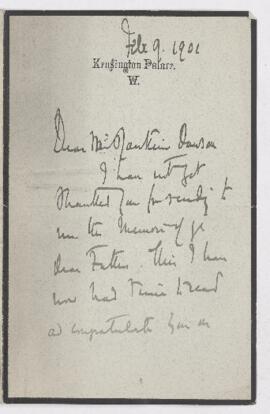 Feb 9. 1901
Kensington Palace.
W.
Dear Mrs Rankin Dawson
I have not yet
thanked you for sending to
me the Memoir of yr
dear Father. This I have
now had time to read
ad congratulate you on